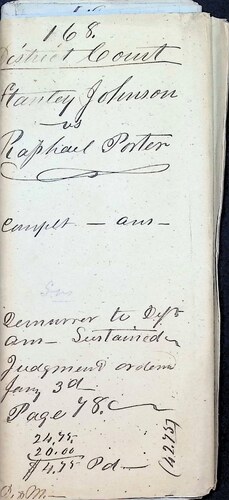 168.
District Court
Stanley Johnson
vs
Raphael Porter
Complt - ans -
Demurrer to Defts
ans - Sustained
Judgment ordered
Jany 3d
Page 78.
24.75
20.00
$4.75 Pd
(42.75)